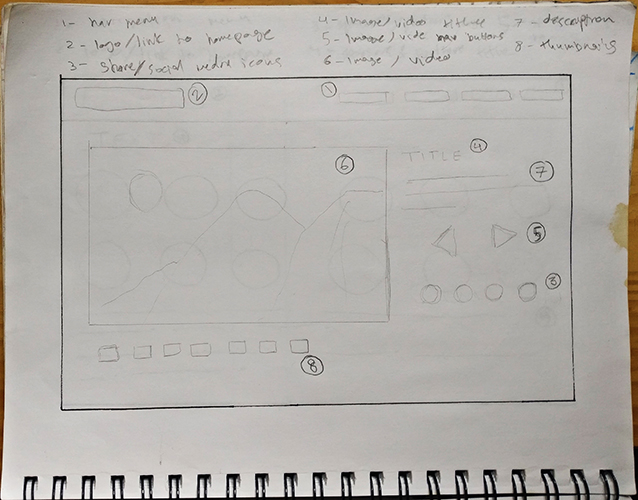 1- nav menu
2 - logo/link to homepage
3 - share/social media icons
4 - Image/video
5 - Image/vide nav buttons
6 - Image / video
7 - description
8 - thumbnails
2
1
TITLE 4
6
7
5
3
8